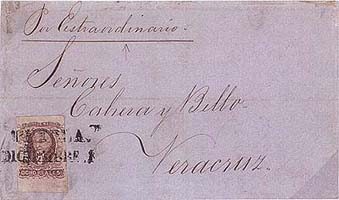 Por Extraordinario.
Señores
Cabrera y Bello
Veracruz.
DICIEMBRE 1
OCHO RALES